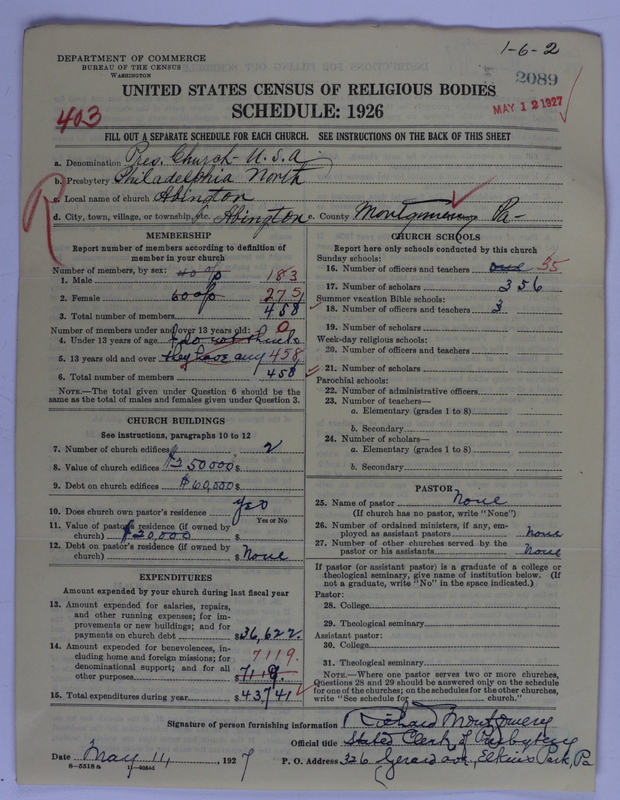 1-6-2
DEPARTMENT OF COMMERCE
BUREAU OF THE CENSUS
WASHINGTON
2089
UNITED STATES CENSUS OF RELIGIOUS BODIES
SCHEDULE: 1926
MAY 12 1927
403
FILL OUT A SEPARATE SCHEDULE FOR EACH CHURCH. SEE INSTRUCTIONS ON THE BACK OF THIS SHEET
a. Denomination Pres. Church - U.S.A.
b. Presbytery Philadelphia North
c. Local name of church Abington
d. City, town, village, or township, etc. Abington e. County Montgomery Pa-
R
MEMBERSHIP
Report number of members according to definition of
member in your church
Number of members, by sex:
1. Male 40% 183
2. Female 60% 275
3. Total number of members 458
Number of members under and over 13 years old:
4. Under 13 years of age I do not think 0
5. 13 years old and over they have any 458
6. Total number of members 458
NOTE.—The total given under Question 6 should be
same as the total of males and females given under Question 3.
CHURCH BUILDINGS
See instructions, paragraphs 10 to 12
7. Number of church edifices 2
8. Value of church edifices $250000 $
9. Debt on church edifices $60,000 $
10. Does church own pastor's residence yes
Yes or No
11. Value of pastor's residence (if owned by
church) $20,000 $
12. Debt on pastor's residence (if owned by
church) $ None
EXPENDITURES
Amount expended by your church during last fiscal year
13. Amount expended for salaries, repairs,
and other running expenses; for im-
provements or new buildings; and for
payments on church debt $36,622.
14. Amount expended for benevolences, in-
cluding home and foreign missions; for
denominational support; and for all
other purposes $7119.
7119.
15. Total expenditures during year $43741
CHURCH SCHOOLS
Report here only schools conducted by this church
Sunday schools:
16. Number of officers and teachers one 35
17. Number of scholars 356
Summer vacation Bible schools:
18. Number of officers and teachers 3
19. Number of scholars
Week-day religious schools:
20. Number of officers and teachers
21. Number of scholars
Parochial schools:
22. Number of administrative officers
23. Number of teachers—
a. Elementary (grades 1 to 8)
b. Secondary
24. Number of scholars—
a. Elementary (grades 1 to 8)
b. Secondary
PASTOR
25. Name of pastor None
(If church has no pastor, write "None")
26. Number of ordained ministers, if any, em-
ployed as assistant pastors None
27. Number of other churches served by the
pastor or his assistants None
If pastor (or assistant pastor) is a graduate of a college or
theological seminary, give name of institution below. (If
not a graduate, write "No" in the space indicated.)
Pastor:
28. College
29. Theological seminary
Assistant pastor:
30. College
31. Theological seminary
NOTE.—Where one pastor serves two or more churches,
Questions 28 and 29 should be answered only on the schedule
for one of the churches; on the schedules for the other churches,
write "See schedule for church."
Signature of person furnishing information Richard Montgomery
Official title Stated Clerk of Presbytery
Date May 11, 1927 P. O. Address 326 Gerard ave, Elkins Park, Pa
8—5518a